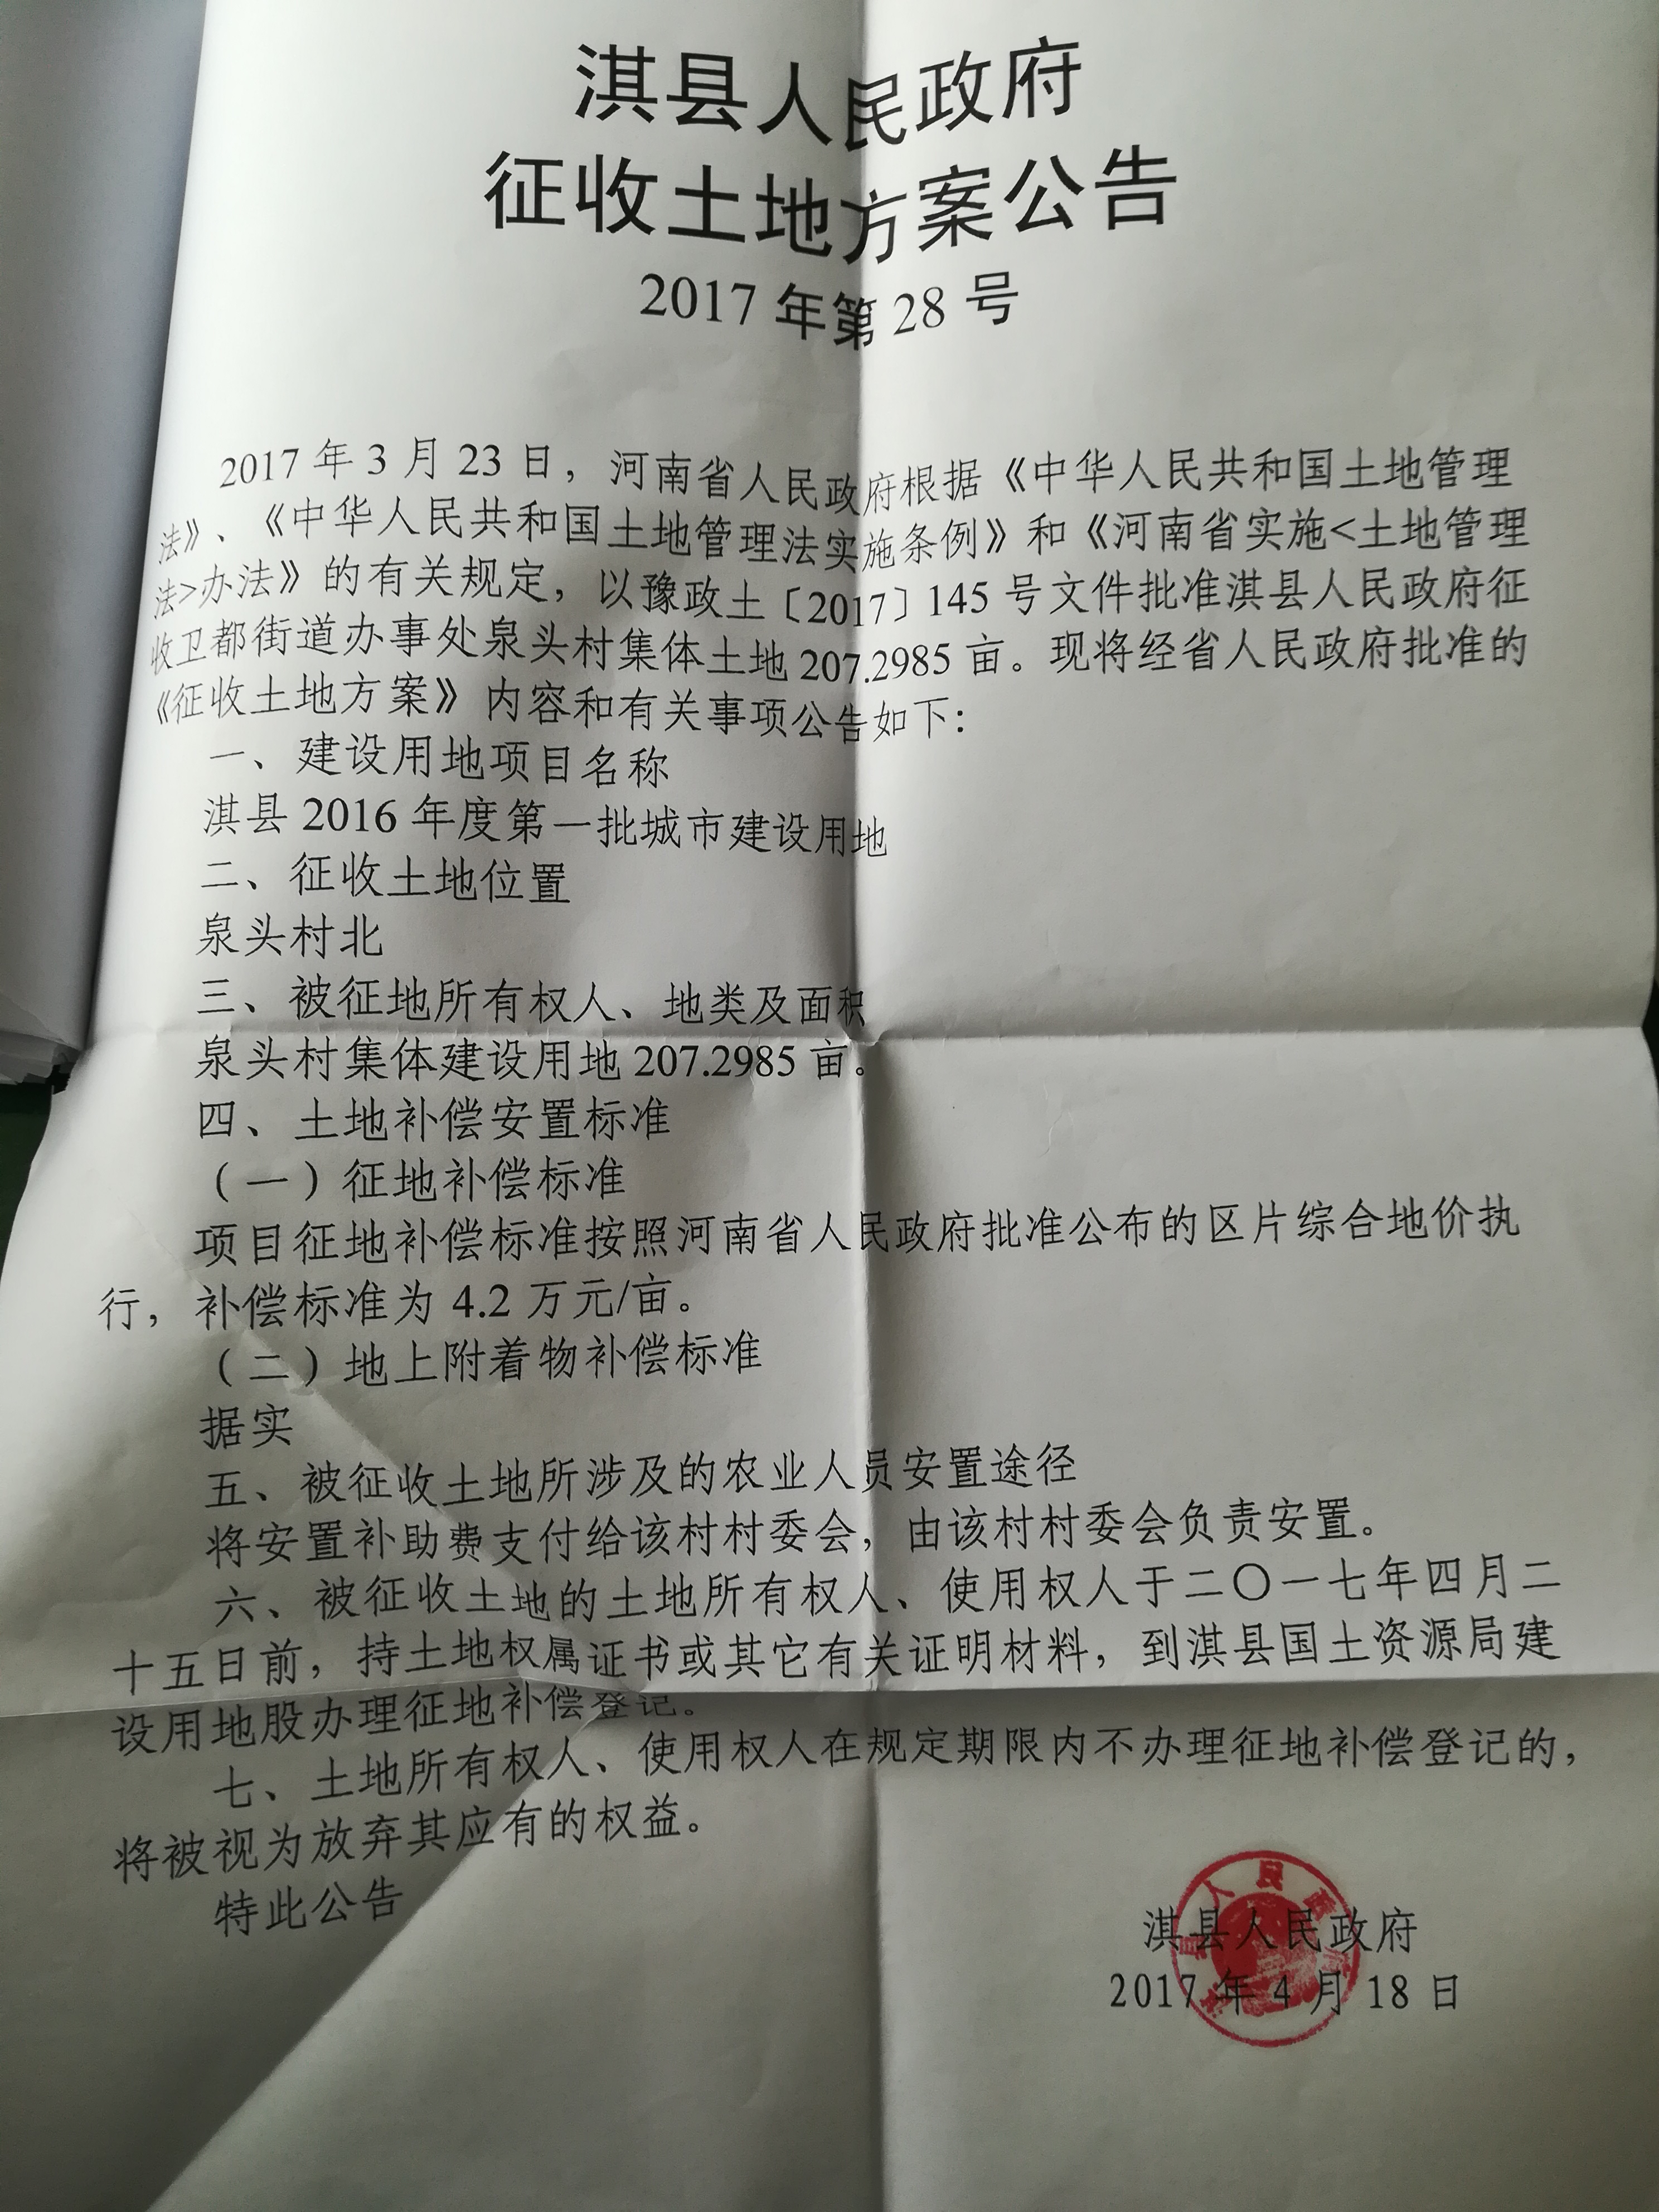 淇县人民政府
征收土地方案公告
2017 年第 28 号
2017 年 3 月 23 日，河南省人民政府根据《中华人民共和国土地管理
法》、《中华人民共和国土地管理法实施条例》和《河南省实施<土地管理
法>办法》的有关规定，以豫政土〔2017〕145 号文件批准淇县人民政府征
收卫都街道办事处泉头村集体土地 207.2985 亩。现将经省人民政府批准的
《征收土地方案》内容和有关事项公告如下：
一、建设用地项目名称
淇县 2016 年度第一批城市建设用地
二、征收土地位置
泉头村北
三、被征地所有权人、地类及面积
泉头村集体建设用地 207.2985 亩。
四、土地补偿安置标准
（一）征地补偿标准
项目征地补偿标准按照河南省人民政府批准公布的区片综合地价执
行，补偿标准为 4.2 万元/亩。
（二）地上附着物补偿标准
据实
五、被征收土地所涉及的农业人员安置途径
将安置补助费支付给该村村委会，由该村村委会负责安置。
六、被征收土地的土地所有权人、使用权人于二〇一七年四月二
十五日前，持土地权属证书或其它有关证明材料，到淇县国土资源局建
设用地股办理征地补偿登记。
七、土地所有权人、使用权人在规定期限内不办理征地补偿登记的，
将被视为放弃其应有的权益。
特此公告
淇县人民政府
2017 年 4 月 18 日